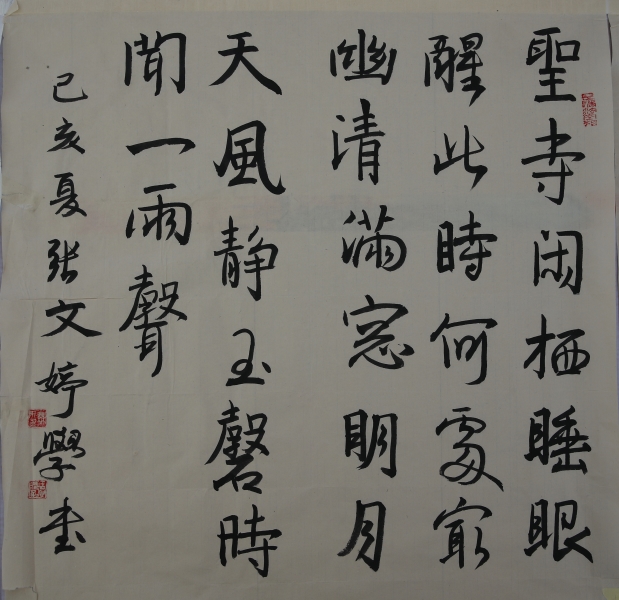 聖寺闲栖睡眼
醒此時何處冣
幽清滿窓明月
天風静玉磬時
聞一兩聲
己亥夏张文婷學書